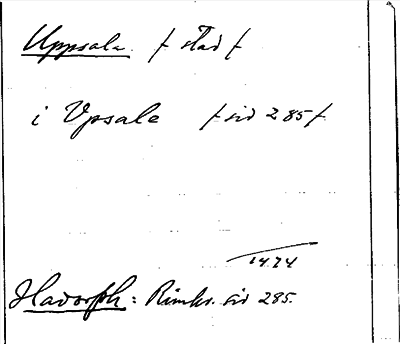 Uppsala. /: stad :/
i Vpsale /: sid 285 :/
1474
Hadorph: Rimkr. sid 285.